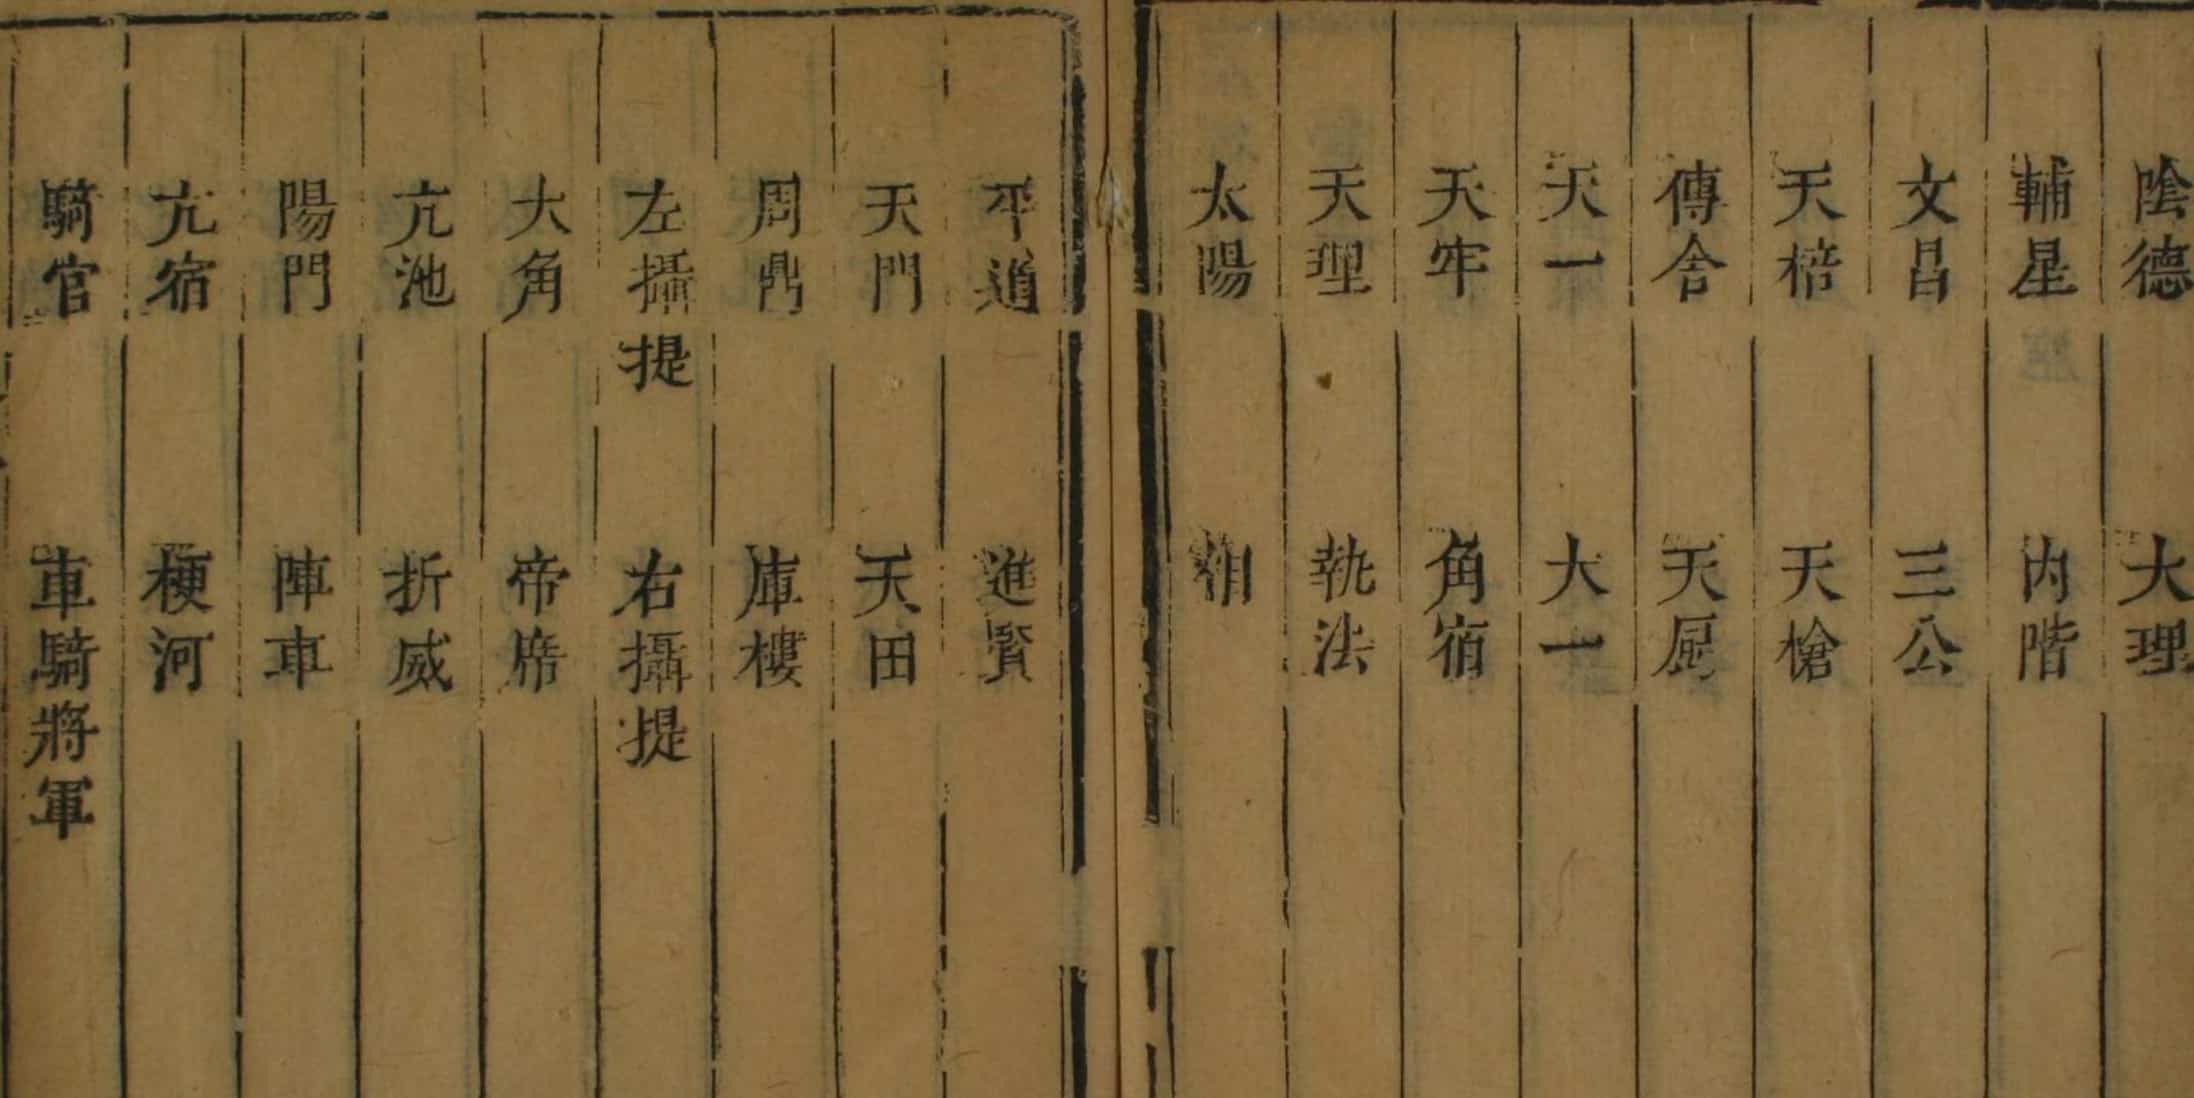 陰德 大理
輔星 內階
文昌 三公
天棓 天槍
傳舍 天厨
天一 大一
天牢 角宿
天理 執法
太陽 相
平道 進賢
天門 天田
周鼎 庫樓
左攝提 右攝提
大角 帝席
亢池 折威
陽門 陣車
亢宿 梗河
騎官 車騎將軍